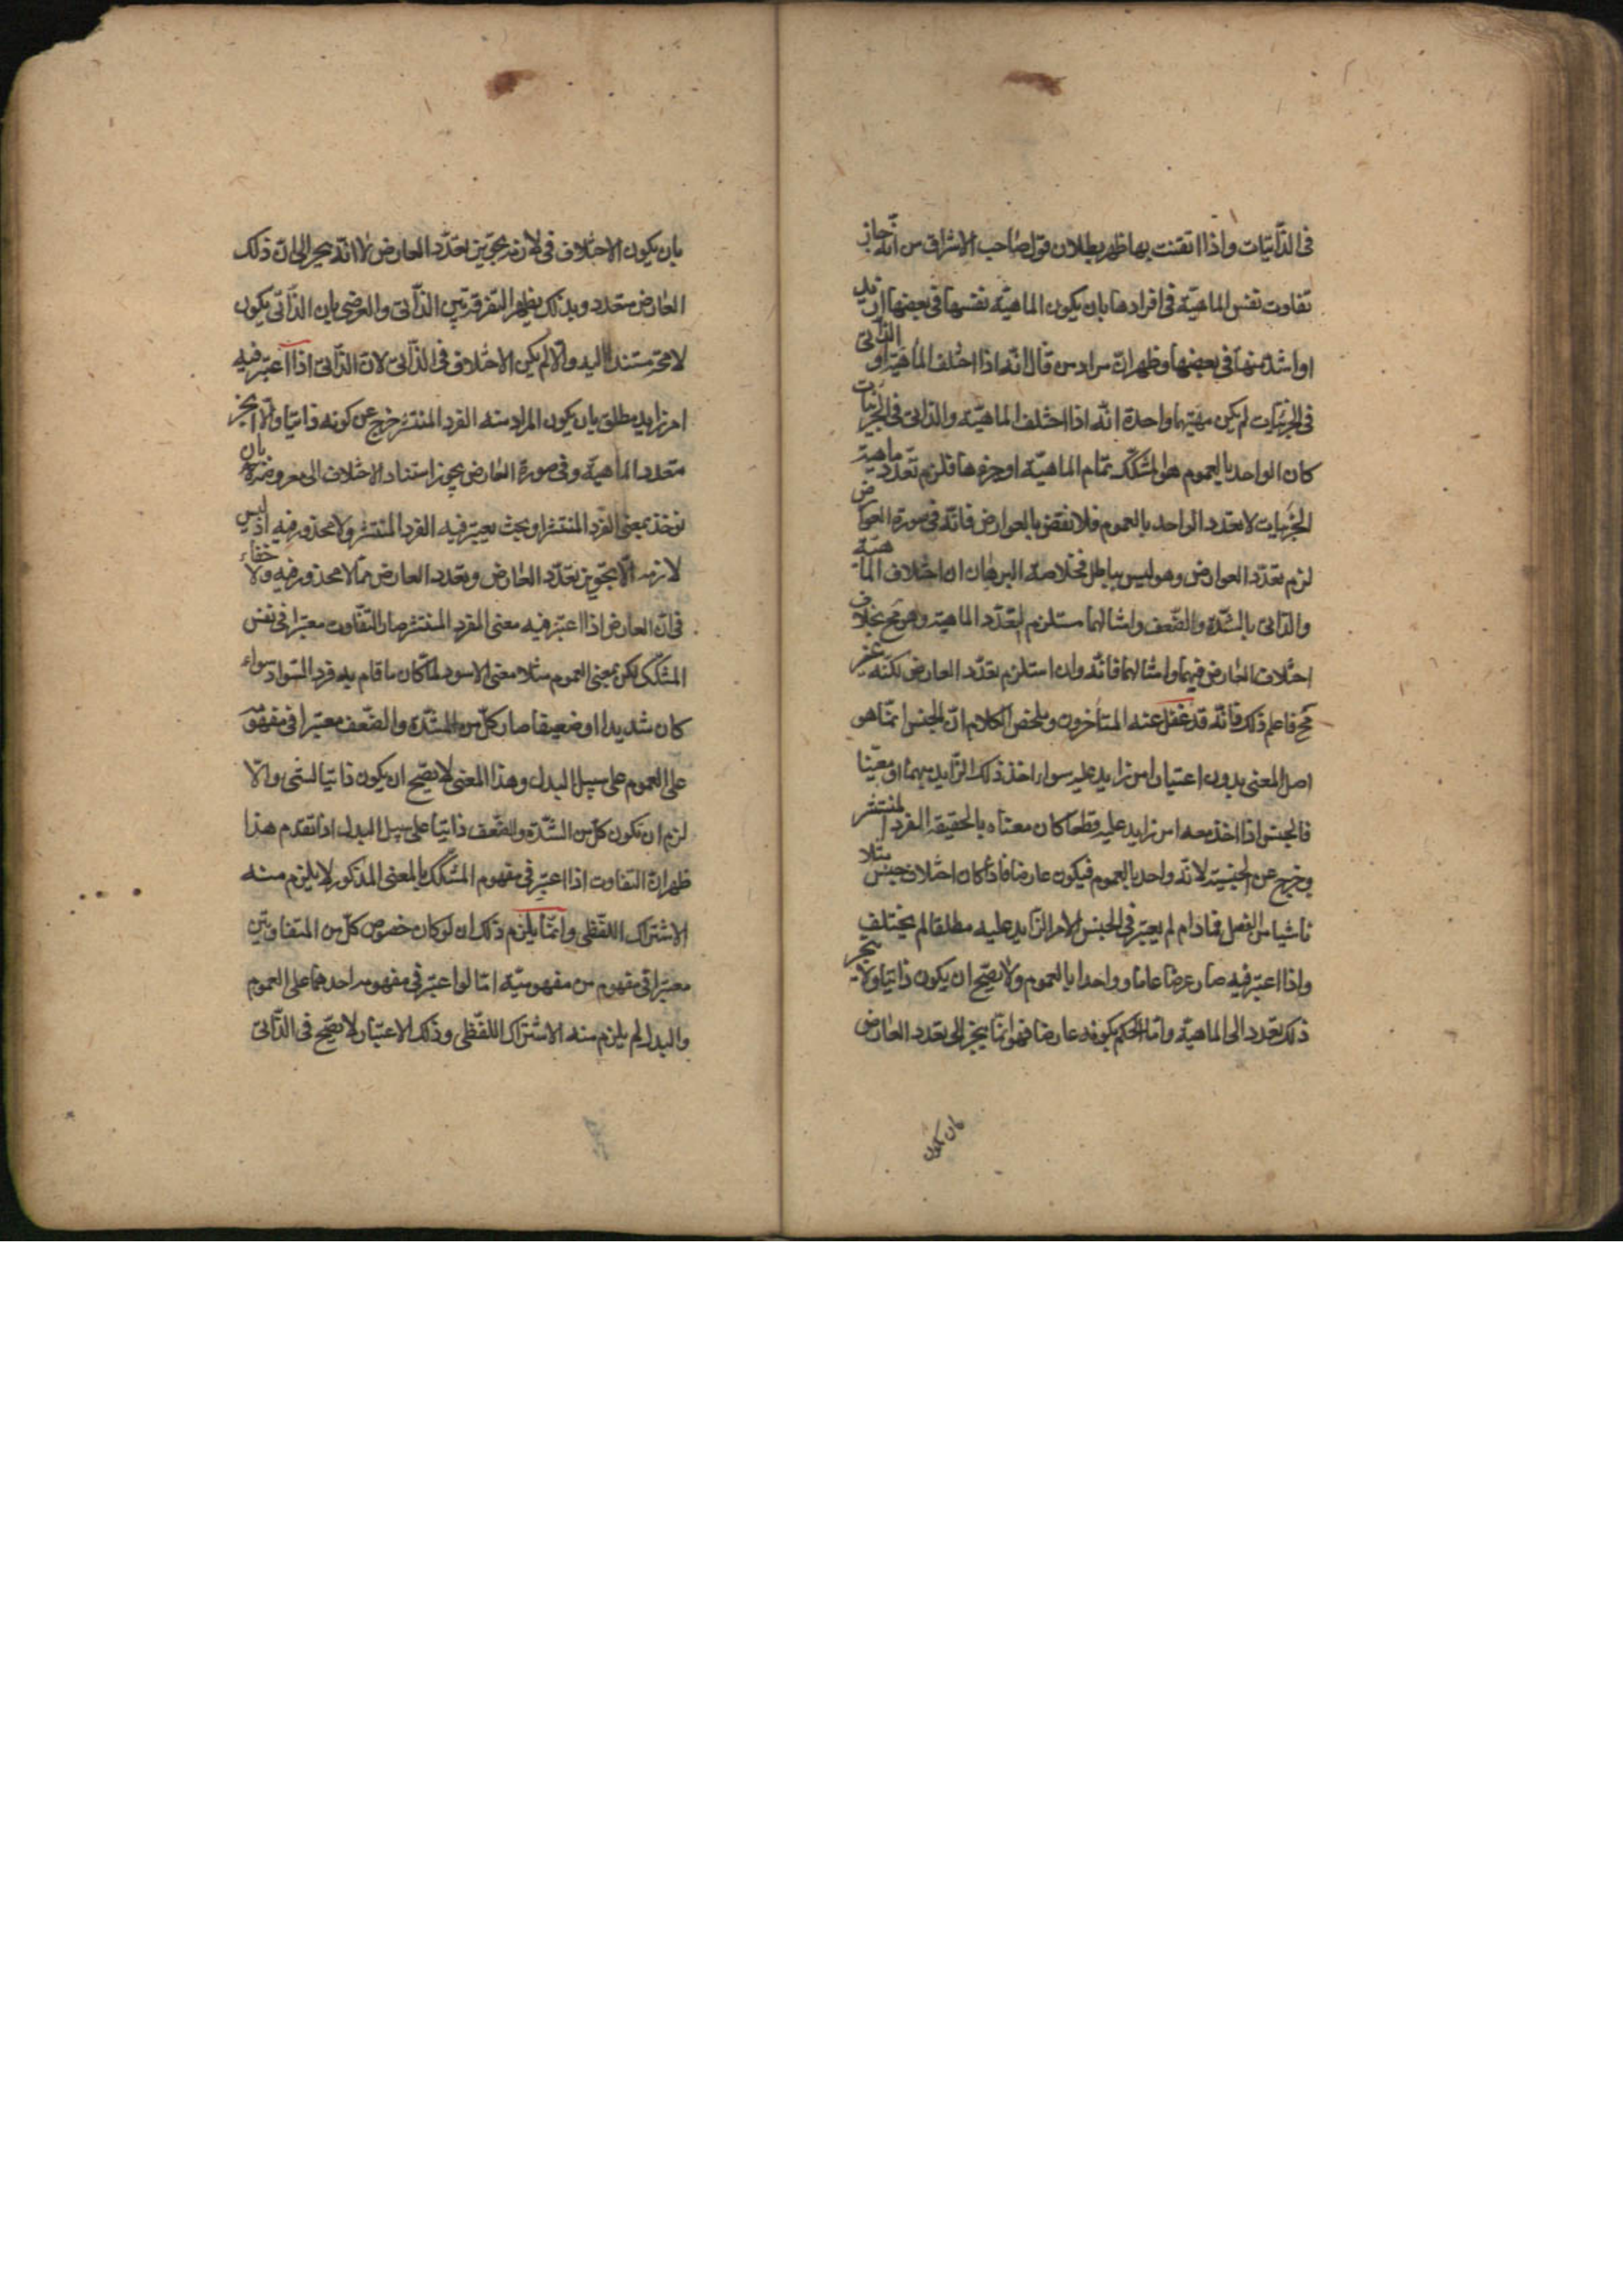 فى الذاتيات واذا اتقنت بها ظهر بطلان قول صاحب الاشراق من انه جاز
تفاوت نفس الماهية فى افرادها بان يكون الماهية نفسها فى بعضها ازيد
او اشد منها فى بعضها وظهر ان مراد من قال انه اذا اختلف الماهية او الذاتى
فى الجزئيات لم يكن مهيتها واحدة انه اذا اختلف الماهية والذاتى فى الجزئيات
كان الواحد بالعموم هو المشكك تمام الماهية او جزءها فلزم تعدد ماهية
الجزئيات لا تعدد الواحد بالعموم فلا نقض بالعوارض فانه فى صورة العوارض
لزم تعدد العوارض وهو ليس بباطل فخلاصة البرهان ان اختلاف الماهية
والذاتى بالشدة والضعف وامثالهما مستلزم لتعدد الماهية وهو مح بخلاف
اختلاف العارض فيهما وامثالهما فانه وان استلزم تعدد العارض لكنه غير
مح فاعلم ذلك فانه قد غفل عنه المتأخرون وملخص الكلام ان الجنس انما هو
اصل المعنى بدون اعتبار امر زايد عليه سواء اخذ ذلك الزايد مبهما او معينا
فالجنس اذا اخذ معه امر زايد عليه قطعا كان معناه بالحقيقة الفرد المنتشر
وخرج عن الجنسية لانه واحد بالعموم فيكون عارضا فاذا كان اختلاف جنس مثلا
ناشيا من الفصل فمادام لم يعتبر فى الجنس الامر الزايد عليه مطلقا لم يختلف
واذا اعتبر فيه صار عرضا عاما وواحدا بالعموم ولا يصح ان يكون ذاتيا ولا ينجر
ذلك تعدد الى الماهية واما الحكم بكونه عارضا فهو انما ينجر الى تعدد العارض
بان يكون
بان يكون الاختلاف فى تجويز تعدد العارض لا انه يجر الى ان ذلك
العارض متعدد وبذلك يظهر التفرقة بين الذاتى والعرضى بان الذاتى يكون
مستندا اليه والا لم يكن الاختلاف فى الذاتى لان الذاتى اذا اعتبر فيه
امر زايد مطلق بان يكون المراد منه الفرد المنتشر خرج عن كونه ذاتيا والا انجر
متعدد الماهية وفى صورة العارض يجوز استناد الاختلاف الى معروضه بان
نوخذ بمعنى الفرد المنتشر او بحث يعتبر فيه الفرد المنتشر ولا محذور فيه اذ ليس
لازمه الا تجويز تعدد العارض وتعدد العارض مما لا محذور فيه ولا خفاء
فى ان العارض اذا اعتبر فيه معنى الفرد المنتشر صار التفاوت معتبرا فى نفس
المشكك لكن بمعنى العموم مثلا معنى الاسود لما كان ما قام به فرد السواد سواء
كان شديدا او ضعيفا صار كل من الشدة والضعف معتبرا فى مفهومه
على العموم على سبيل البدل وهذا المعنى لا يصح ان يكون ذاتيا لشى والا
لزم ان تكون كل من الشدة والضعف ذاتيا على سبيل البدل اذا تقدم هذا
ظهر ان التفاوت اذا اعتبر فى مفهوم المشكك بالمعنى المذكور لا يلزم منه
الاشتراك اللفظى وانما يلزم ذلك ان لو كان خصوص كل من المتفاوتين
معتبرا فى مفهوم من مفهوميه اما لو اعتبر فى مفهومه احدهما على العموم
والبدل لم يلزم منه الاشتراك اللفظى وذلك الاعتبار لا يصح فى الذاتى